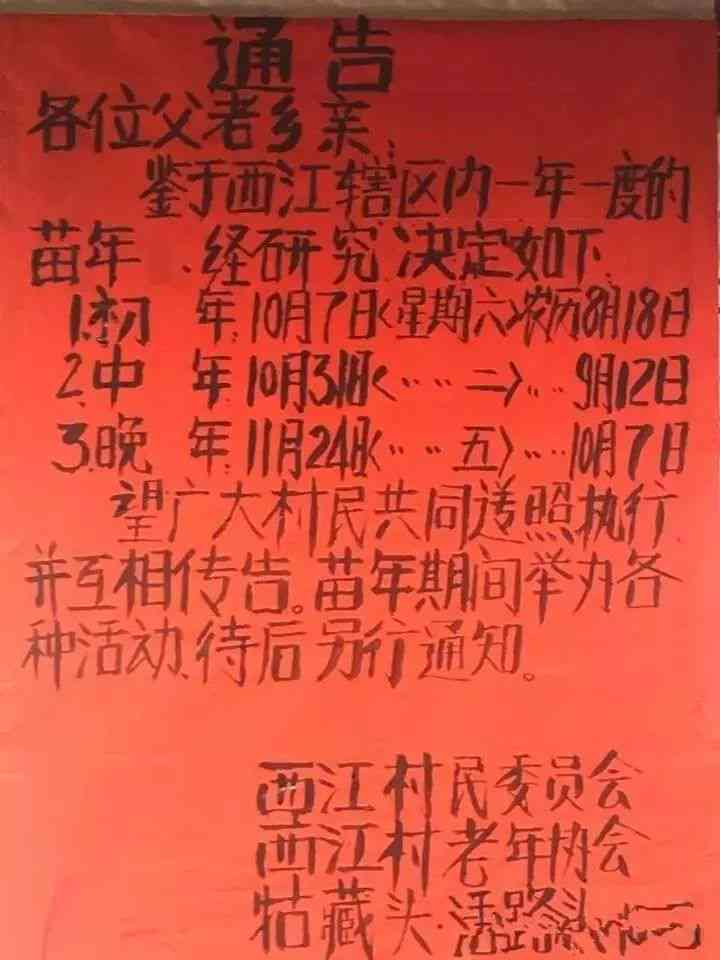 通告
各位父老乡亲、
鉴于西江辖区内一年一度的
苗年、经研究决定如下、
1.初 年:10月7日<星期六>农历8月18日
2.中 年:10月31日<··· ···二>··· ···9月12日
3.晚 年:11月24日<··· ···五>··· ···10月7日
望广大村民共同遵照执行
并互相传告。苗年期间举办各
种活动、待后另行通知。
西江村民委员会
西江村老年协会
牯藏头·活路头